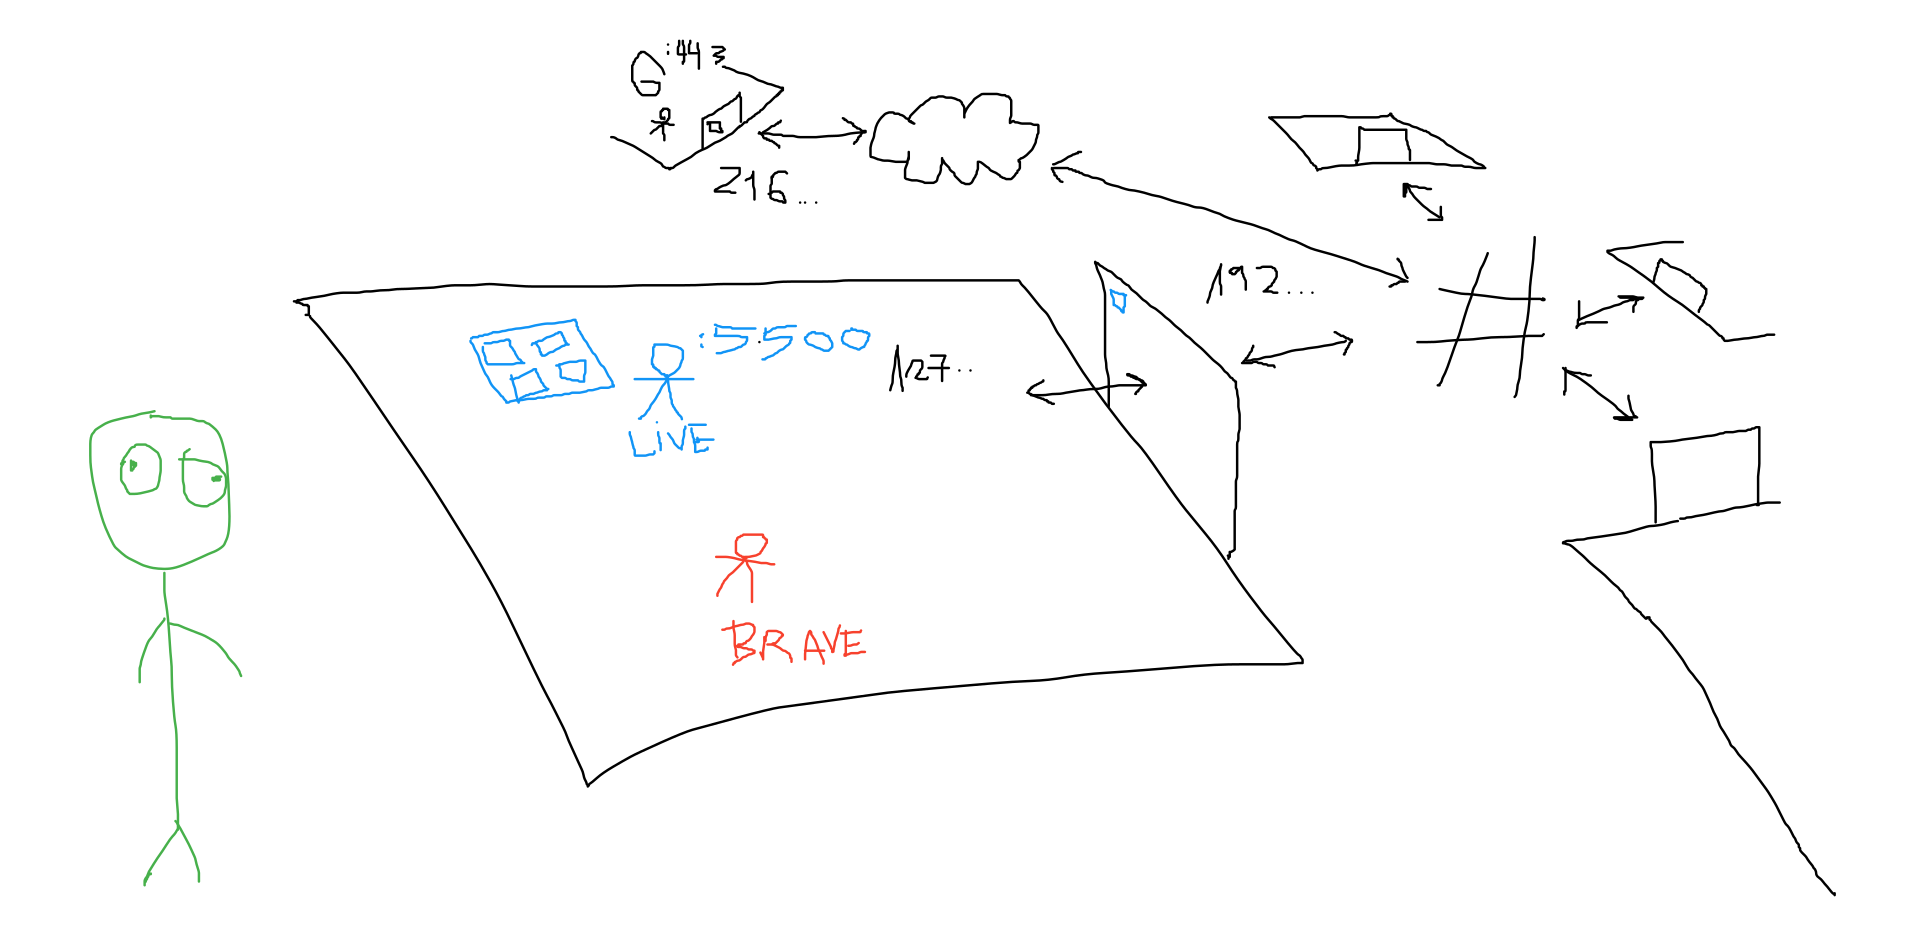 G :443
216...
192...
:5500
127..
LiVE
BRAVE